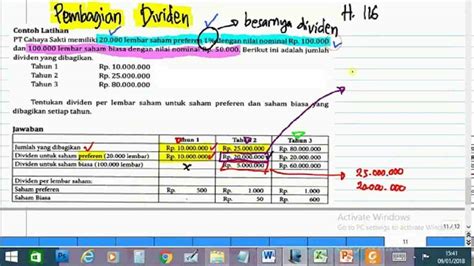 Pembagian Dividen
besarnya dividen
H. 116
Contoh Latihan
PT Cahaya Sakti memiliki 20.000 lembar saham preferen 1% dengan nilai nominal Rp. 100.000
dan 100.000 lembar saham biasa dengan nilai nominal Rp. 50.000. Berikut ini adalah jumlah
dividen yang dibagikan.
Tahun 1 Rp. 10.000.000
Tahun 2 Rp. 25.000.000
Tahun 3 Rp. 80.000.000
Tentukan dividen per lembar saham untuk saham preferen dan saham biasa yang
dibagikan setiap tahun.
Jawaban
Tahun 1 Tahun 2 Tahun 3
Jumlah yang dibagikan Rp. 10.000.000 Rp. 25.000.000 Rp. 80.000.000
Dividen untuk saham preferen (20.000 lembar) Rp. 10.000.000 Rp. 20.000.000 Rp. 20.000.000
Dividen untuk saham biasa (100.000 lembar) x Rp. 5.000.000 Rp. 60.000.000
25.000.000
20.000.000
Dividen per lembar saham:
Saham preferen Rp. 500 Rp. 1.000 Rp. 1.000
Saham Biasa - Rp. 50 Rp. 600
Activate Windows
Go to PC settings to activate Windows.
11 / 12
11
15:41
09/01/2018